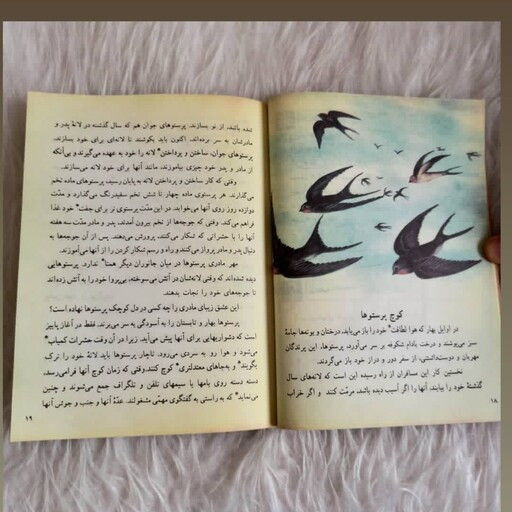 کوچ پرستوها
در اوایل بهار که هوا لطافت* خود را باز می‌یابد، درختان و بوته‌ها جامهٔ
سبز می‌پوشند و درخت بادام شکوفه بر سر می‌آورد، پرستوها، این پرندگان
مهربان و دوست‌داشتنی، از سفر دور و دراز خود باز می‌گردند.
نخستین کار این مسافران از راه رسیده این است که لانه‌های سال
گذشتهٔ خود را بیابند، آنها را اگر آسیب دیده باشد، مرمّت کنند و اگر خراب
۱۸
شده باشد، از نو بسازند. پرستوهای جوان هم که سال گذشته در لانهٔ پدر و
مادرشان به سر برده‌اند، اکنون باید بکوشند تا لانه‌ای برای خود بسازند.
پرستوهای جوان، ساختن و پرداختن* لانه را خود به عهده می‌گیرند و بی‌آنکه
از مادر و پدر خود چیزی بیاموزند، مانند آنها برای خود لانه می‌سازند.
وقتی که کار ساختن و پرداختن لانه به پایان رسید، پرستوهای ماده تخم
می‌گذارند. هر پرستوی ماده چهار تا شش تخم سفیدرنگ می‌گذارد و مدّت
دوازده روز روی آنها می‌خوابد. در این مدّت پرستوی نر برای جفت* خود غذا
می‌آورد. وقتی که جوجه‌ها از تخم بیرون آمدند، پدر و مادر مدّت سه هفته
آنها را با حشراتی که شکار می‌کنند، پرورش می‌دهند. پس از آن جوجه‌ها به
دنبال پدر و مادر پرواز می‌کنند و راه و رسم شکار کردن را از آنها می‌آموزند.
مهر مادری پرستوها در میان جانوران دیگر همتا* ندارد. پرستوهایی
دیده شده‌اند که وقتی لانه‌شان در آتش می‌سوخته، بی‌پروا خود را به آتش زده‌اند
تا جوجه‌های خود را نجات بدهند.
این عشق زیبای مادری را چه کسی در دل کوچک پرستوها نهاده است؟
پرستوها بهار و تابستان را به آسودگی به سر می‌برند. فقط در آغاز پاییز
است که دشواریهایی برای آنها پیش می‌آید. زیرا در آن وقت حشرات کمیاب*
می‌شود و هوا رو به سردی می‌رود. ناچار پرستوها باید لانهٔ خود را ترک
بگویند* و به‌جاهای معتدلتری* کوچ کنند. وقتی که زمان کوچ آنها فرا می‌رسد،
دسته دسته روی بامها یا سیمهای تلفن و تلگراف جمع می‌شوند و چنین
می‌نماید* که به راستی به گفتگوی مهمّی مشغولند. عدّهٔ آنها و جنب و جوش آنها
۱۹